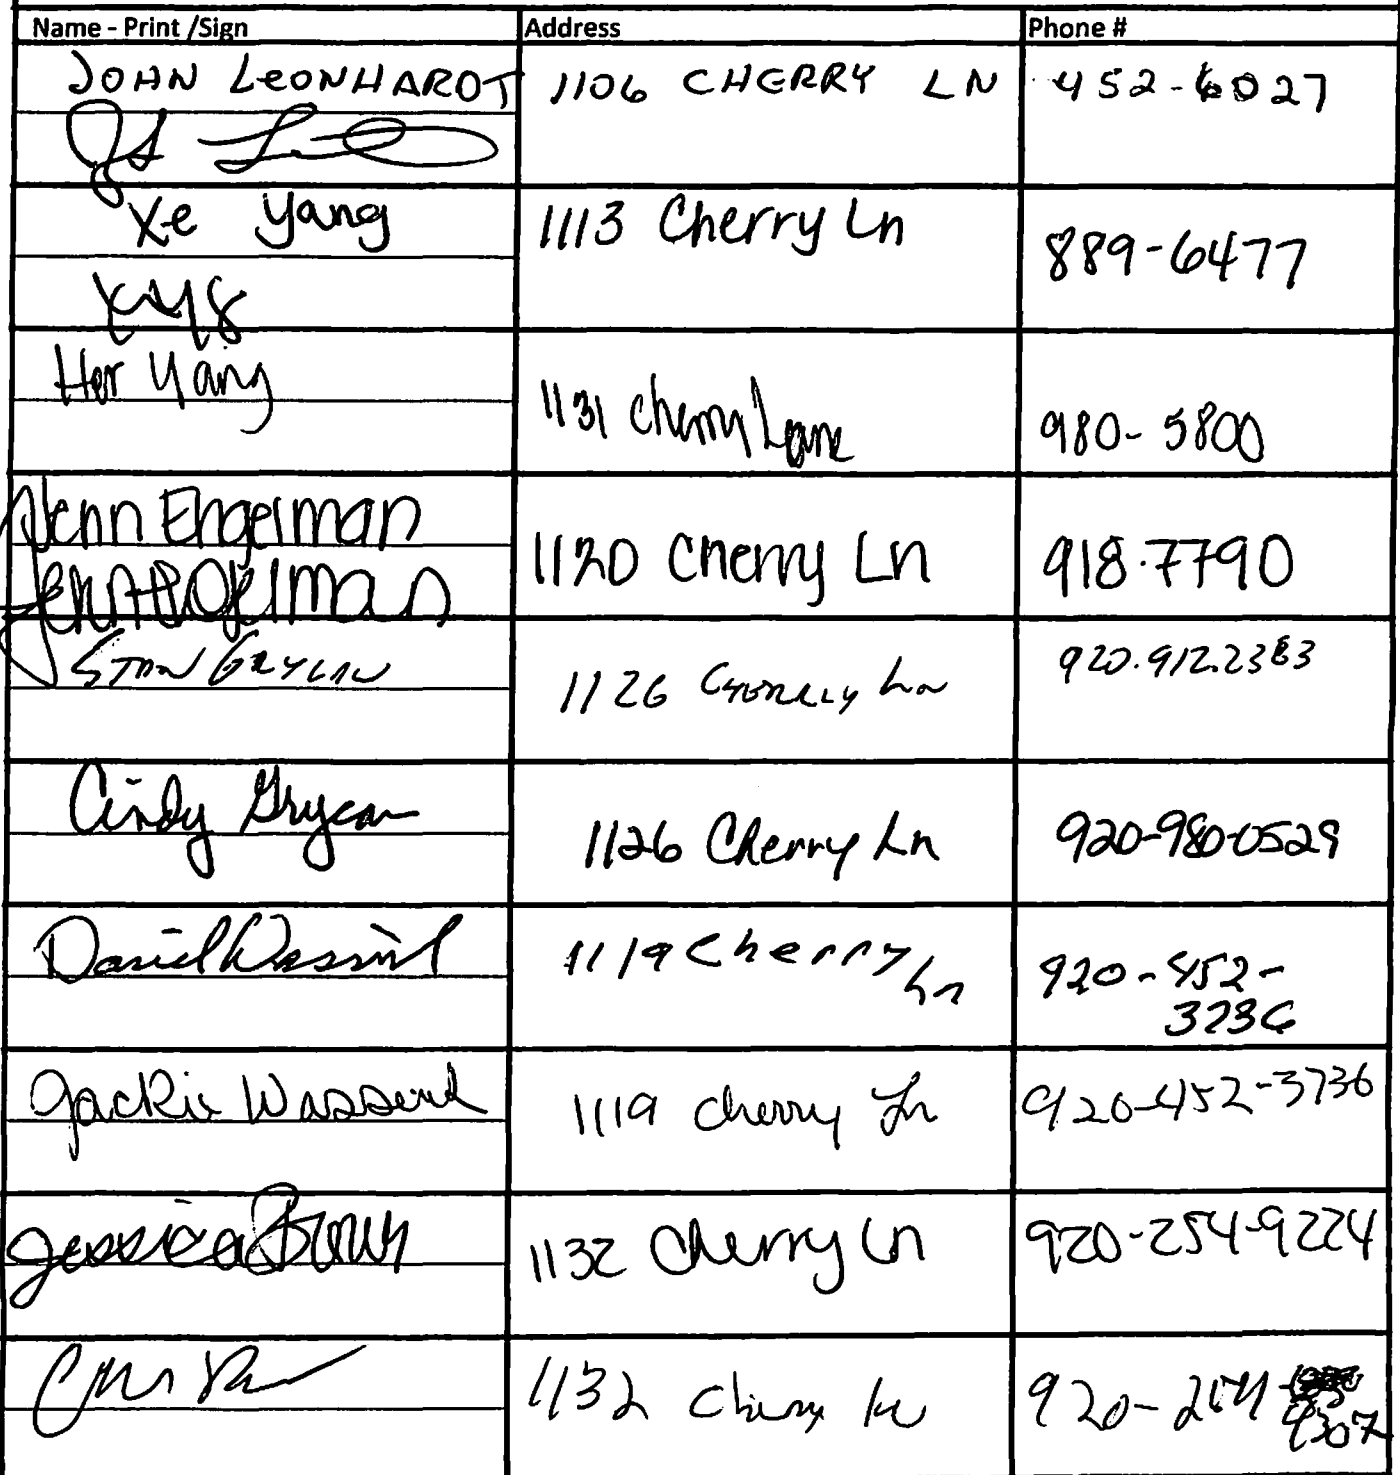 Name - Print /Sign Address Phone #
JOHN LEONHARDT 1106 CHERRY LN 452-6027
Xe Yang 1113 Cherry Ln 889-6477
Her Yang 1131 Cherry Lane 980-5800
Jenn Engelman 1120 Cherry Ln 918-7790
Jenn Engelman
STAN GRYCAN 1126 CHERRY Ln 920.912.2383
Cindy Grycan 1126 Cherry Ln 920-980-0529
Daniel 1119 Cherry Ln 920-452-
3736
Jackie 1119 Cherry Ln 920-452-3736
Jessica Brown 1132 Cherry Ln 920-254-9224
1132 Cherry Ln 920-254-
4307